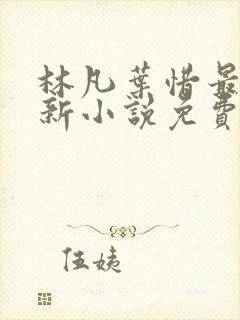 林凡葉惜最
新小說免費
伍姨